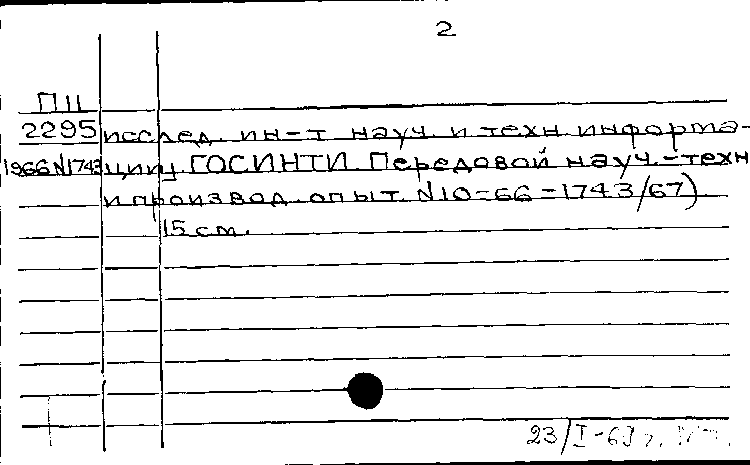 2
П11
2295 исслед. ин-т науч. и техн. информа-
1966 N1743 ции ГОСИНТИ. Передовой науч.-техн
и производ. опыт. N10-66-1743/67).
15 см.
23/I-69 г.